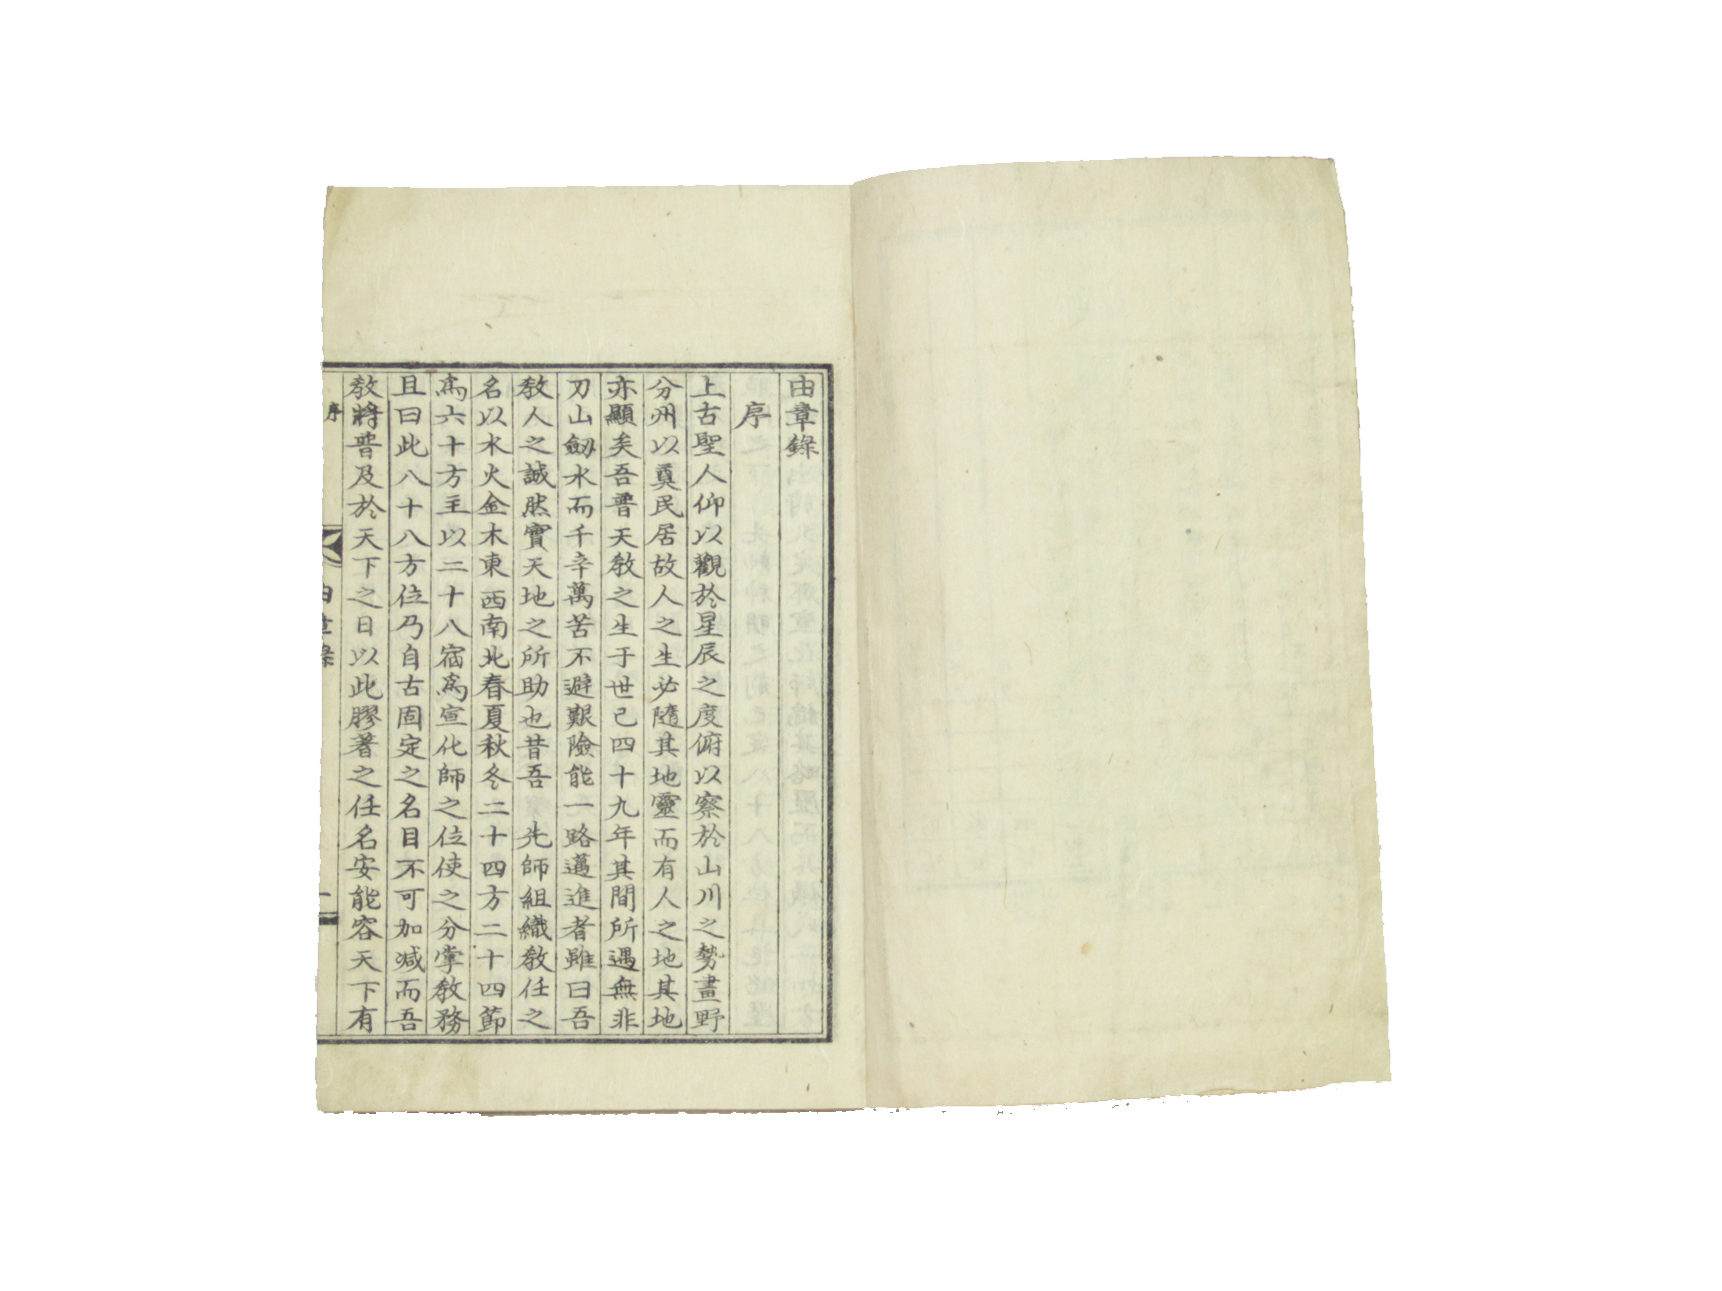 由章錄
序
上古聖人仰以觀於星辰之度俯以察於山川之勢畫野
分州以奠民居故人之生必隨其地靈而有人之地其地
亦顯矣吾普天敎之生于世已四十九年其間所遇無非
刀山劒水而千辛萬苦不避艱險能一路邁進者雖曰吾
敎人之誠然實天地之所助也昔吾 先師組織敎任之
名以水火金木東西南北春夏秋冬二十四方二十四節
爲六十方主以二十八宿爲宣化師之位使之分掌敎務
且曰此八十八方位乃自古固定之名目不可加減而吾
敎將普及於天下之日以此膠著之任名安能容天下有
序
由章錄
一